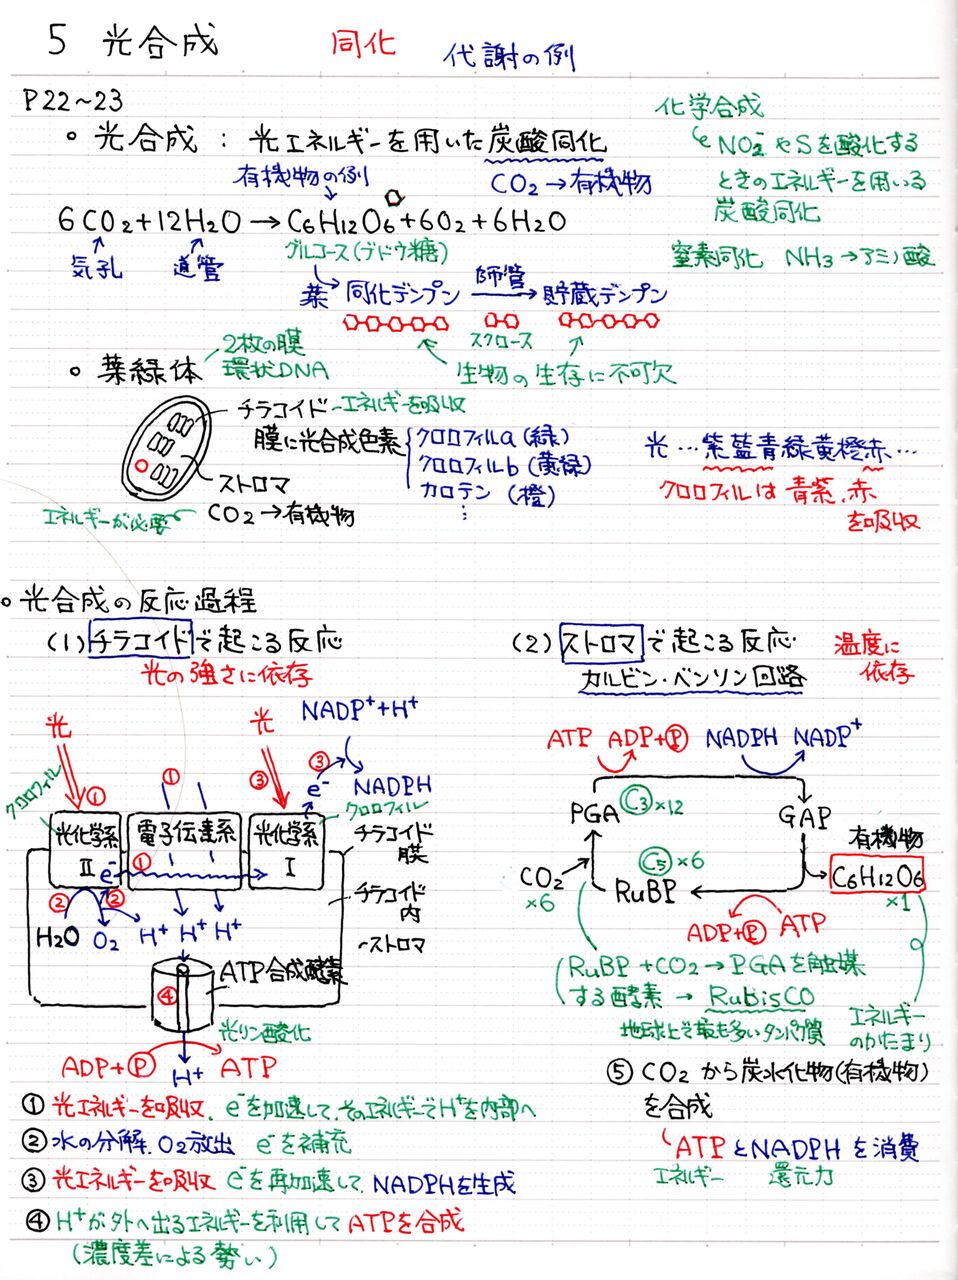 5 光合成 同化 代謝の例
P22~23
化学合成
○ 光合成 : 光エネルギーを用いた炭酸同化
NO₂⁻やSを酸化する
ときのエネルギーを用いる
炭酸同化
有機物の例
CO₂→有機物
6CO₂+12H₂O → C₆H₁₂O₆+6O₂+6H₂O
気孔 道管
グルコース(ブドウ糖)
窒素同化 NH₃→アミノ酸
葉 同化デンプン 師管 貯蔵デンプン
スクロース
生物の生存に不可欠
○ 葉緑体
2枚の膜
環状DNA
チラコイド-エネルギーを吸収
膜に光合成色素
クロロフィルa(緑)
クロロフィルb(黄緑)
カロテン (橙)
⋮
ストロマ
エネルギーが必要
CO₂→有機物
光…紫藍青緑黄橙赤…
クロロフィルは青紫、赤
を吸収
○光合成の反応過程
(1)チラコイドで起こる反応
光の強さに依存
光
光
NADP⁺+H⁺
① ① ③ ③
e⁻ NADPH
クロロフィル
クロロフィル
光化学系
II
電子伝達系
光化学系
I
チラコイド
膜
e⁻ ①
チラコイド
内
② ②
H₂O O₂ H⁺ H⁺ H⁺
ストロマ
ATP合成酵素
④
光リン酸化
ADP+Ⓟ ATP
H⁺
① 光エネルギーを吸収、e⁻を加速して、そのエネルギーでH⁺を内部へ
② 水の分解、O₂放出 e⁻を補充
③ 光エネルギーを吸収 e⁻を再加速して、NADPHを生成
④ H⁺が外へ出るエネルギーを利用してATPを合成
(濃度差による勢い)
(2)ストロマで起こる反応
カルビン・ベンソン回路
温度に
依存
ATP ADP+Ⓟ NADPH NADP⁺
PGA C₃×12 GAP
有機物
CO₂
×6
C₅×6
RuBP
C₆H₁₂O₆
×1
ADP+Ⓟ ATP
RuBP+CO₂→PGAを触媒
する酵素 → RubisCO
地球上で最も多いタンパク質
エネルギー
のかたまり
⑤ CO₂から炭水化物(有機物)
を合成
ATPとNADPHを消費
エネルギー 還元力